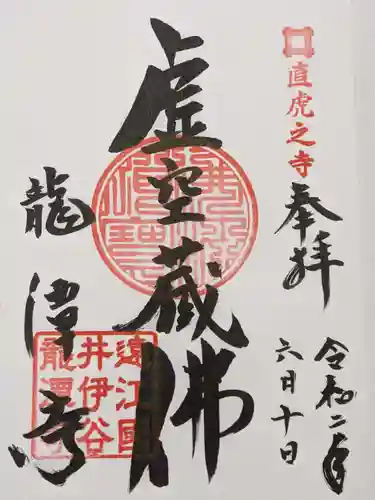 直虎之寺
奉拝
令和二年
六日十日
虚空蔵佛
龍潭寺
遠江國
井伊谷
龍潭寺